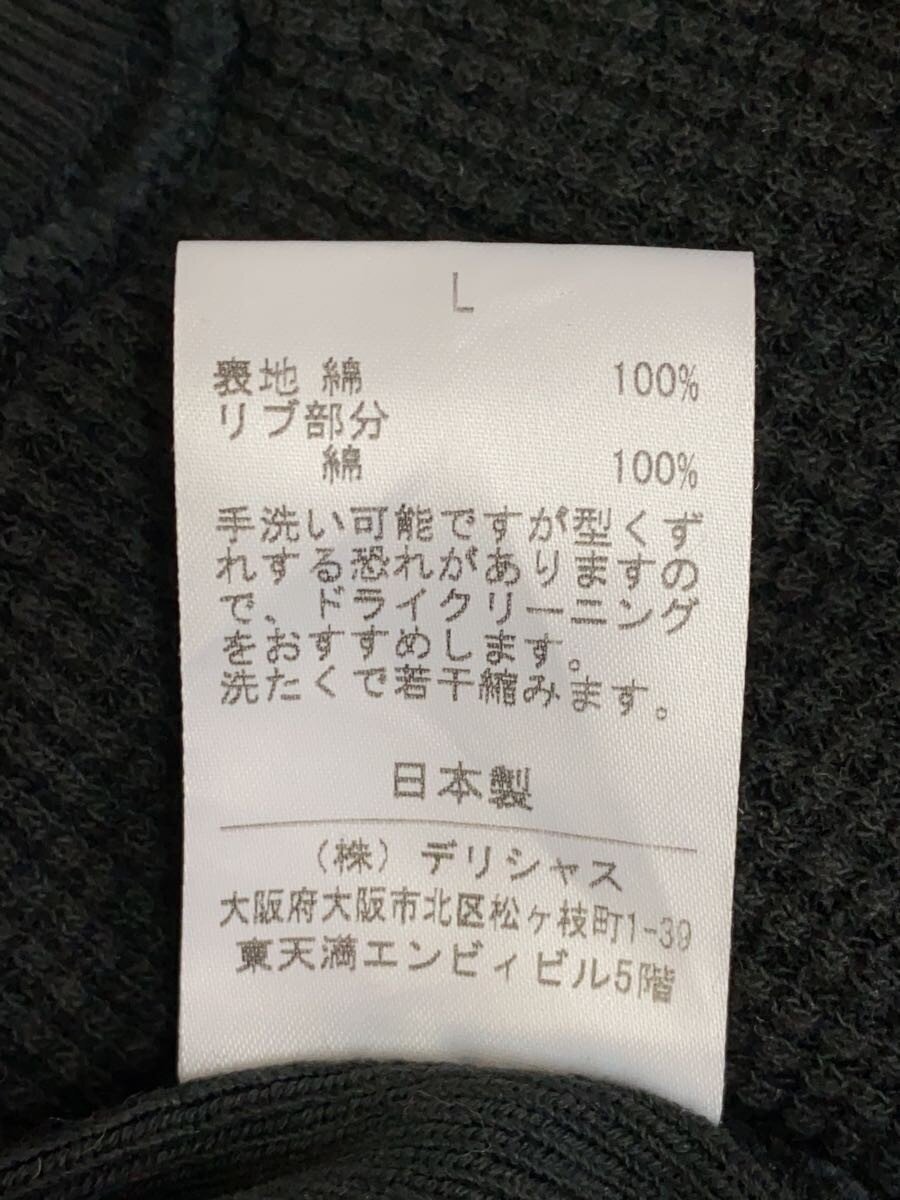 L
表地 綿 100%
リブ部分
綿 100%
手洗い可能ですが型くず
れする恐れがありますの
で、ドライクリーニング
をおすすめします。
洗たくで若干縮みます。
日本製
(株)デリシャス
大阪府大阪市北区松ヶ枝町1-39
東天満エンビィビル5階